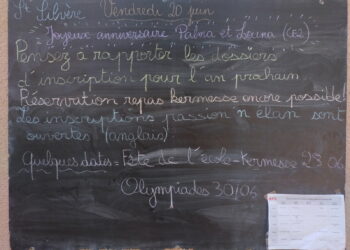 St Silvère Vendredi 20 juin
Joyeux anniversaire Palma et Louna (CE2)
Pensez à rapporter les dossiers
d'inscription pour l'an prochain
Réservation repas kermesse encore possible!
Les inscriptions passion n élan sont
ouvertes (anglais)
Quelques dates - Fête de l'école - Kermesse 28 06
Olympiades 30/06